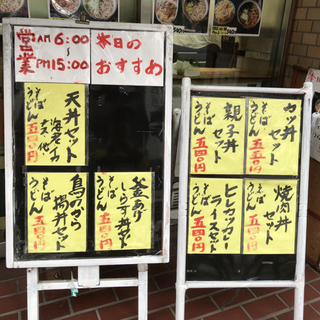 営業
AM6:00
〜
PM15:00
本日の
おすすめ
天丼セット
海老・イカ
ナス・他
そば
うどん
五四〇円
鳥のから
揚丼セット
そば
うどん
五四〇円
釜あげ
しらす丼セット
そば
うどん
五四〇円
親子丼
セット
そば
うどん
五四〇円
カツ丼
セット
そば
うどん
五四〇円
ヒレカツカレー
ライスセット
そば
うどん
五四〇円
焼肉丼
セット
そば
うどん
五四〇円